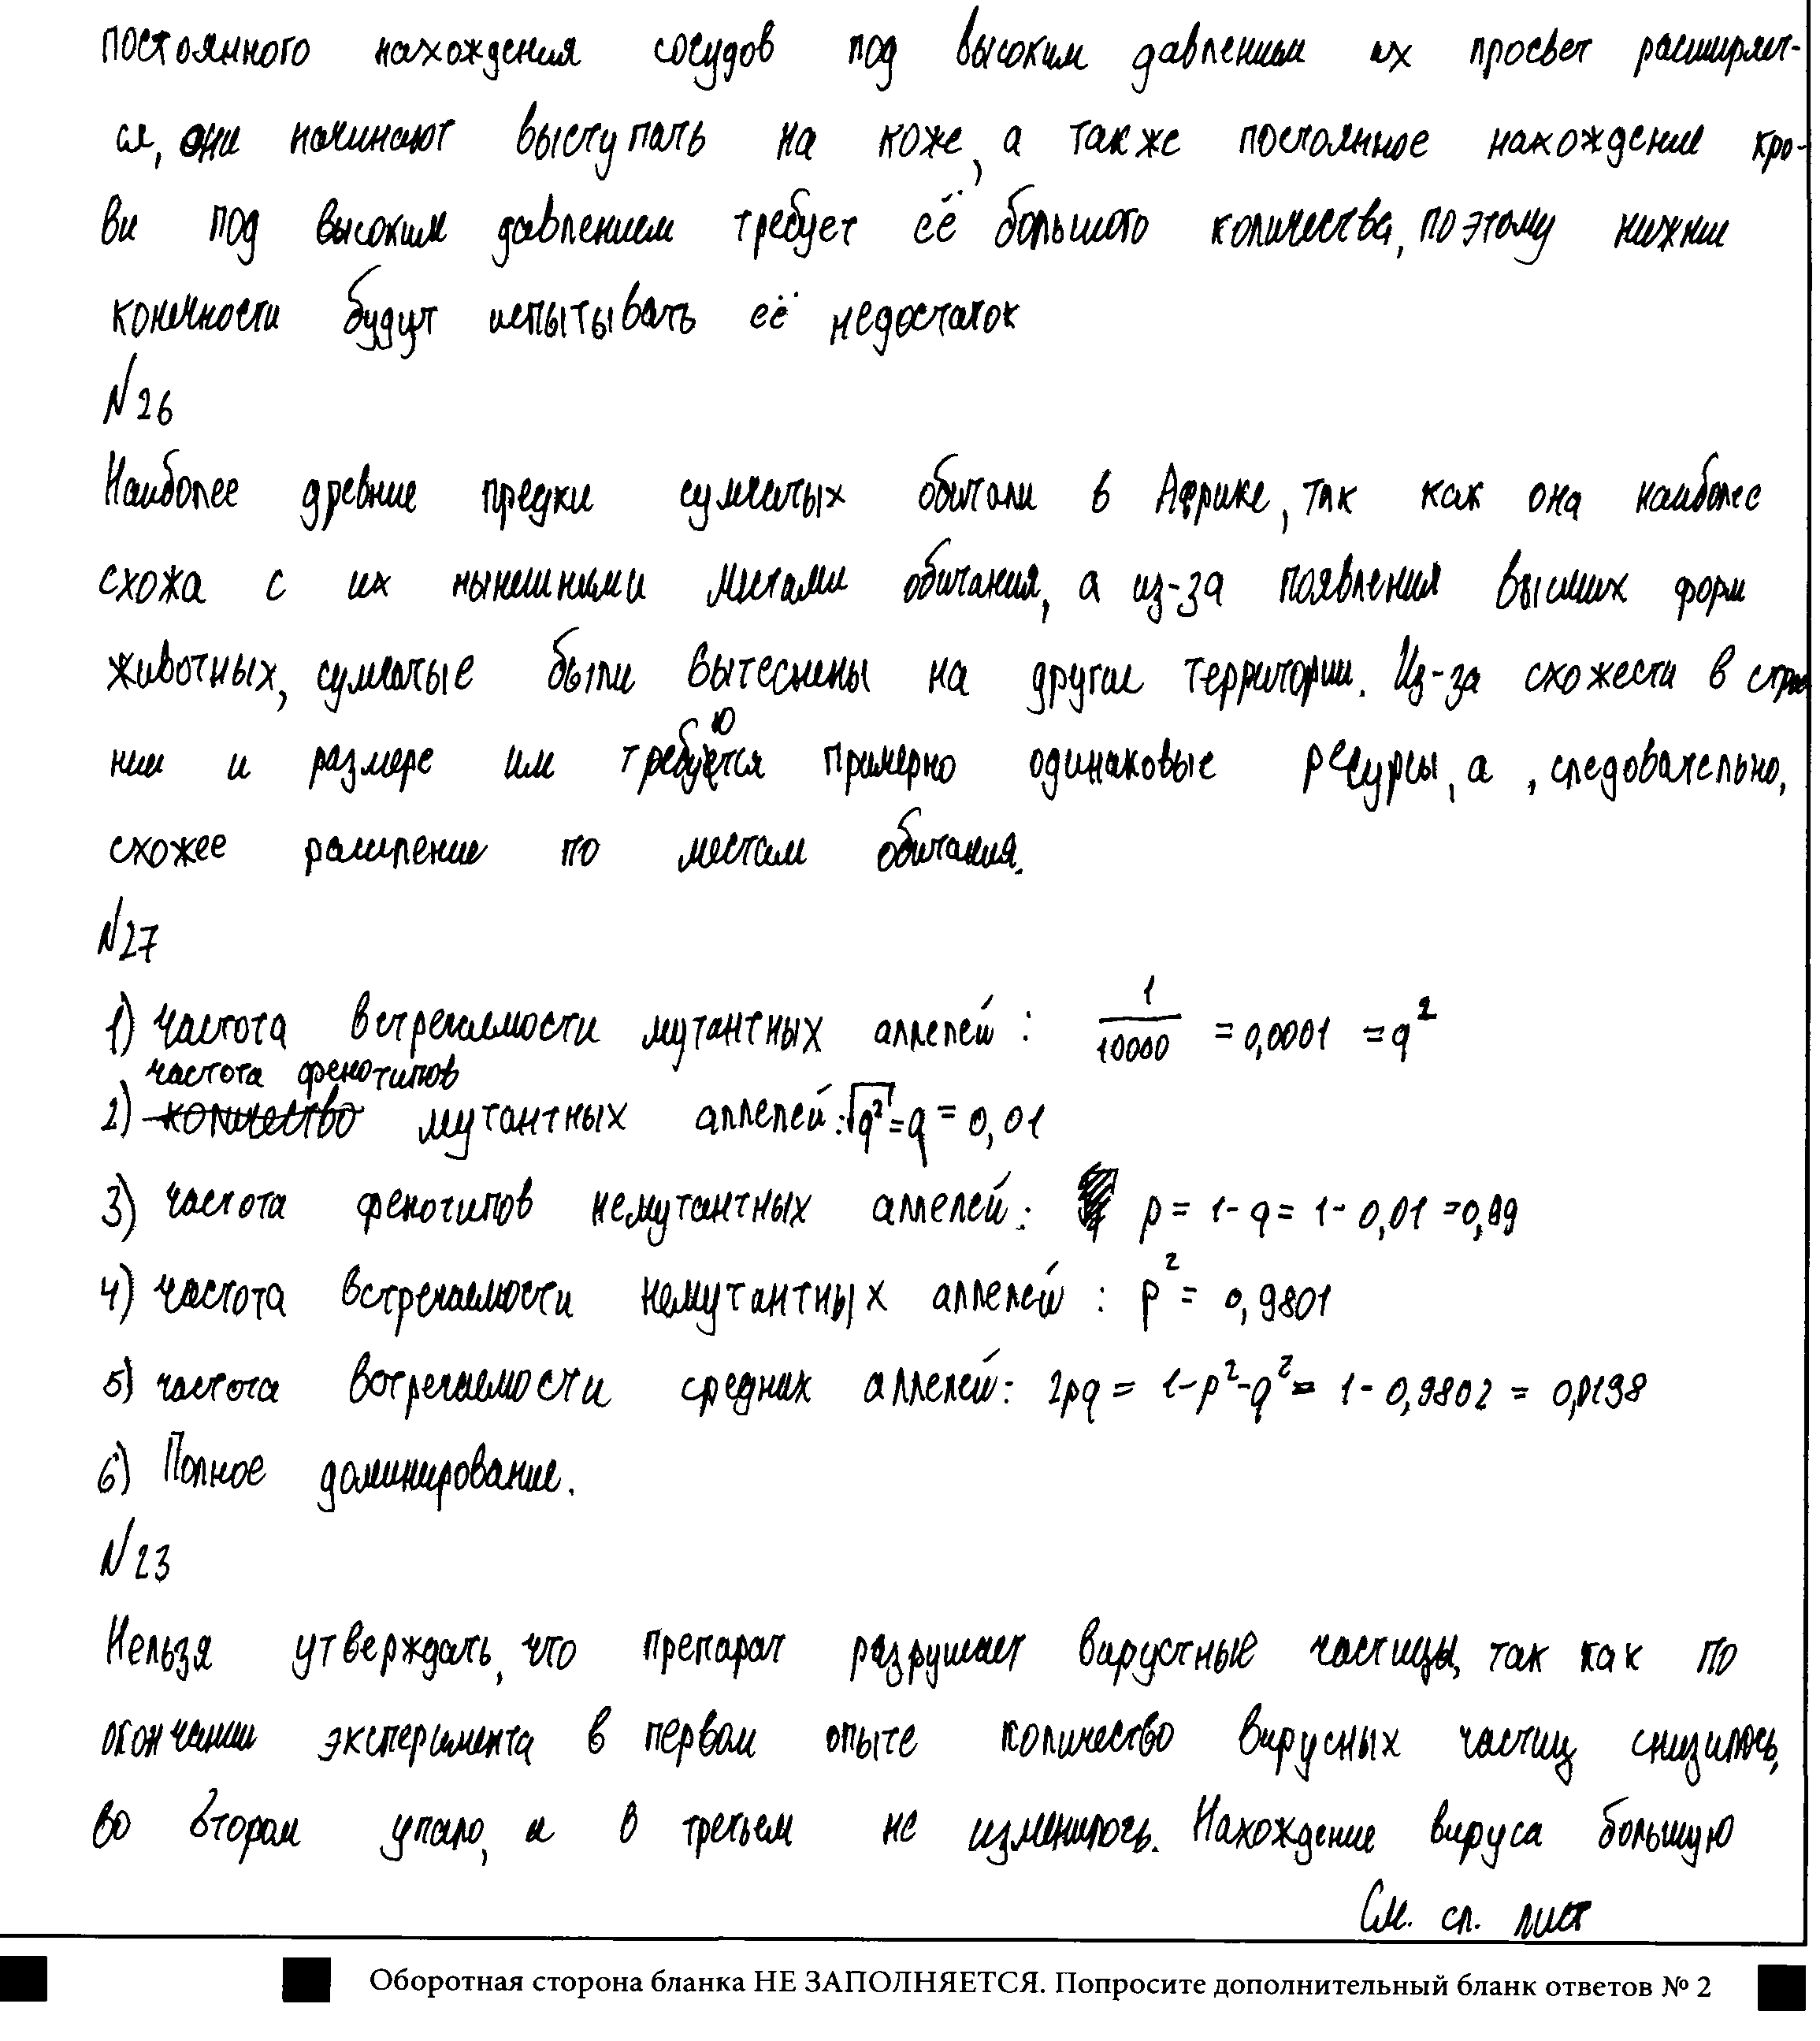 постоянного нахождения сосудов под высоким давлением их просвет расширяет-
ся, они начинают выступать на коже, а также постоянное нахождение кро-
ви под высоким давлением требует её большого количества, поэтому нижние
конечности будут испытывать её недостаток
№26
Наиболее древние предки сумчатых обитали в Африке, так как она наиболее
схожа с их нынешними местами обитания, а из-за появления высших форм
животных, сумчатые были вытеснены на другие территории. Из-за схожести в строе
нии и размере им требуются примерно одинаковые ресурсы, а , следовательно,
схожее расселение по местам обитания.
№27
1) частота встречаемости мутантных аллелей : 1/10000 = 0,0001 = q²
2) частота фенотипов мутантных аллелей: √q² = q = 0,01
3) частота фенотипов немутантных аллелей: p = 1 - q = 1 - 0,01 = 0,99
4) частота встречаемости немутантных аллелей : p² = 0,9801
5) частота встречаемости средних аллелей: 2pq = 1 - p² - q² = 1 - 0,9802 = 0,0198
6) Полное доминирование.
№23
Нельзя утверждать, что препарат разрушает вирустные частицы, так как по
окончании эксперимента в первом опыте количество вирусных частиц снизилось,
во втором упало, и в третьем не изменилось. Нахождение вируса большую
См. сл. лист
Оборотная сторона бланка НЕ ЗАПОЛНЯЕТСЯ. Попросите дополнительный бланк ответов № 2